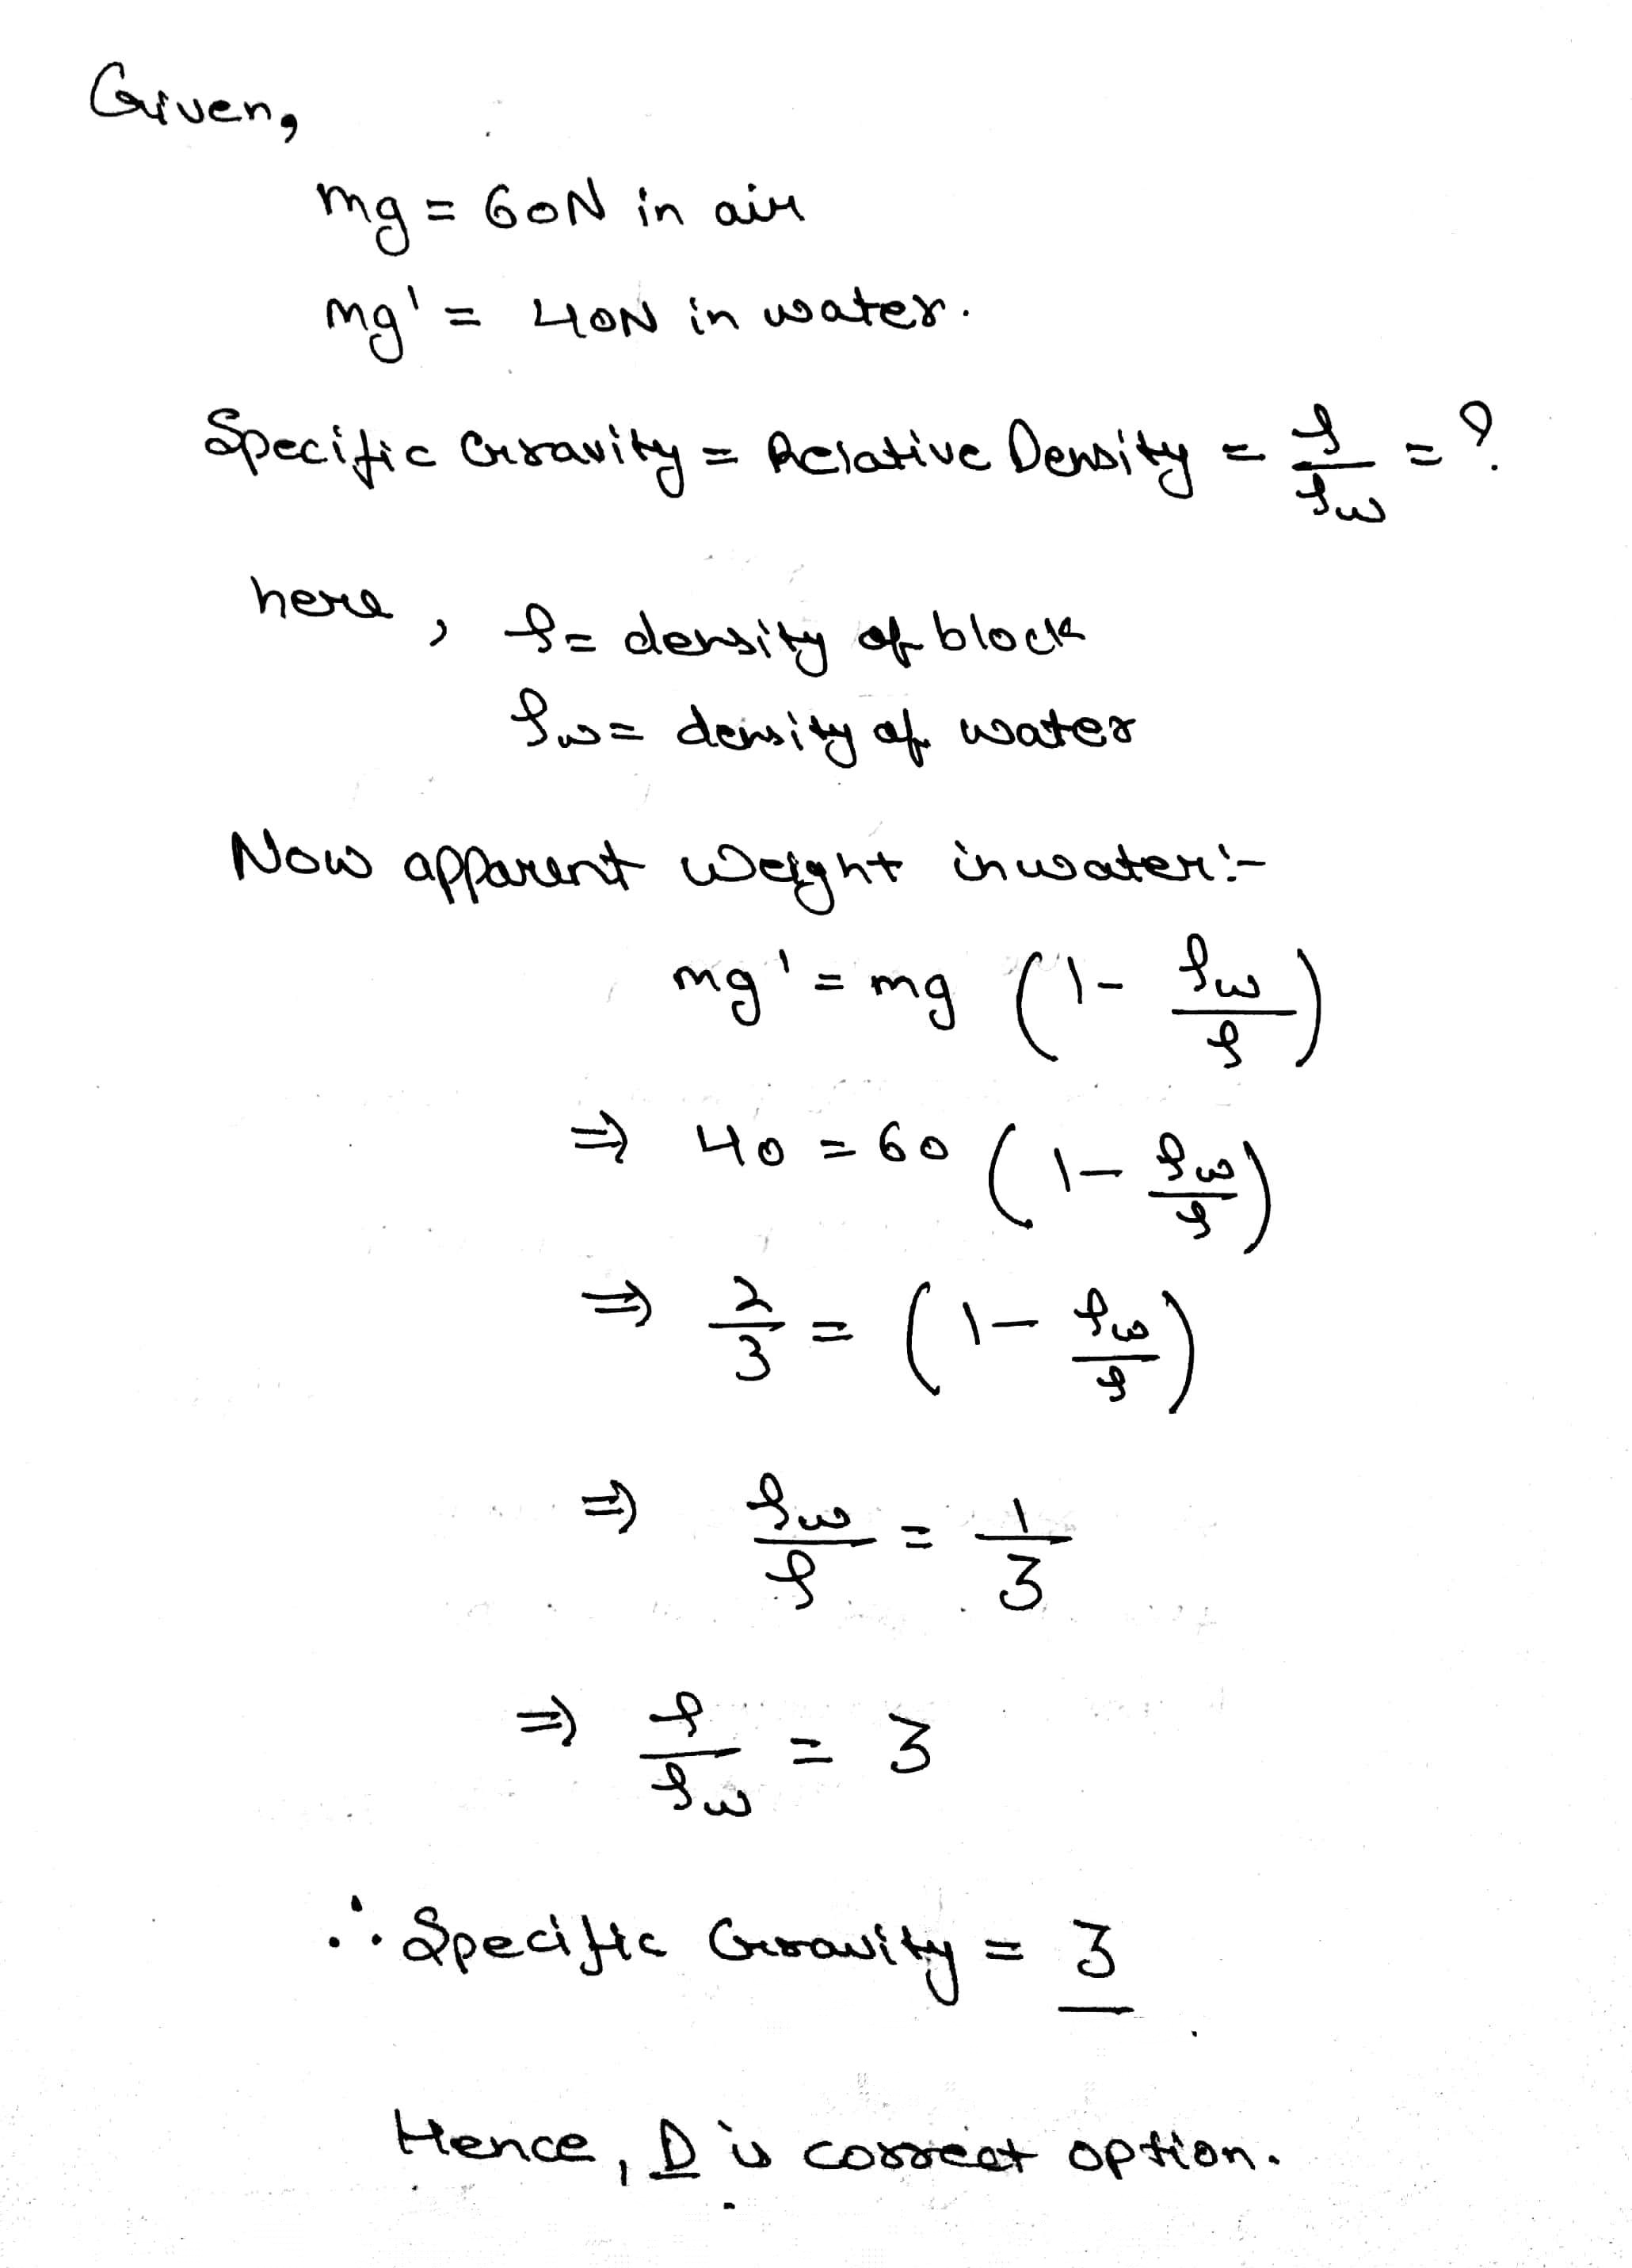 Given,
mg = 60N in air
mg' = 40N in water.
Specific Gravity = Relative Density = ρ/ρw = ?
here, ρ = density of block
ρw = density of water
Now apparent weight in water:-
mg' = mg (1 - ρw/ρ)
⇒ 40 = 60 (1 - ρw/ρ)
⇒ 2/3 = (1 - ρw/ρ)
⇒ ρw/ρ = 1/3
⇒ ρ/ρw = 3
∴ Specific Gravity = 3
Hence, D is correct option.